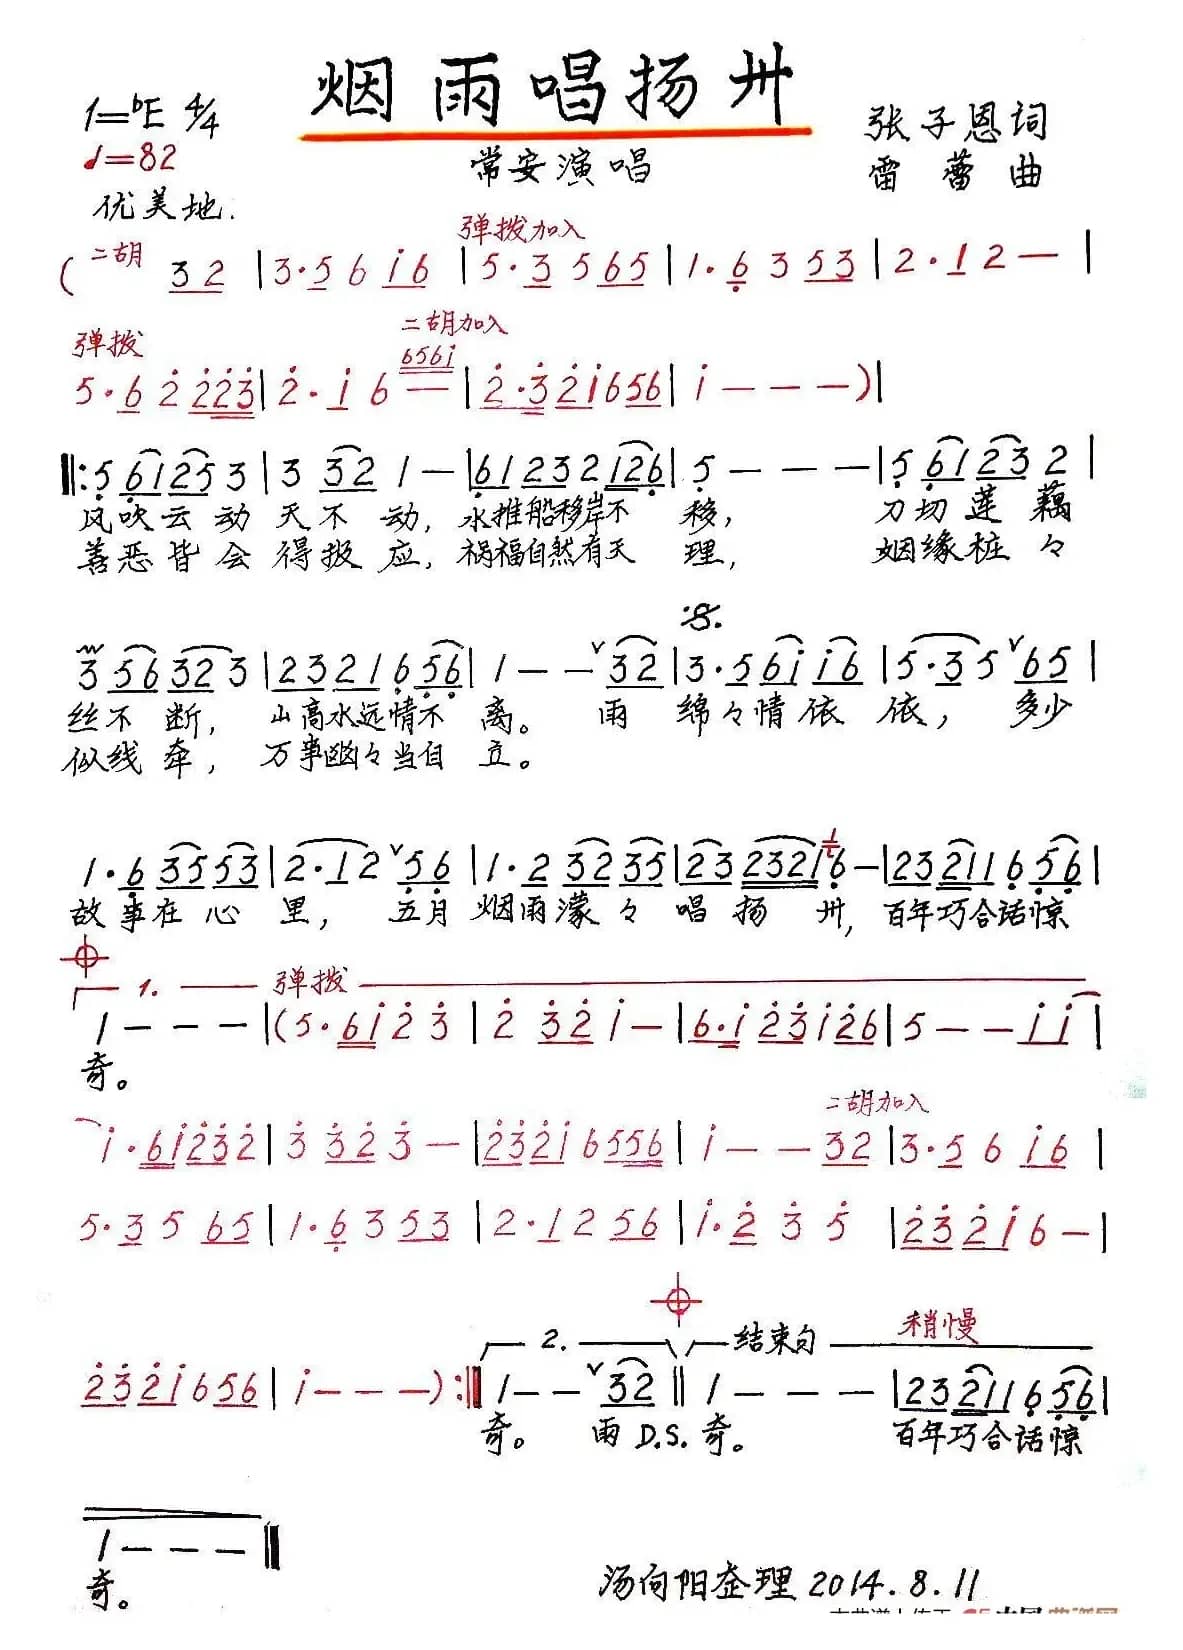 烟雨唱扬州
1=♭E 4/4
张子恩词
♩=82
常安演唱
雷蕾曲
优美地.
弹拨加入
(二胡 32 | 3·5 6 i6 | 5·3 5 65 | 1·6 3 53 | 2·1 2 — |
弹拨
二胡加入
656i
5·6 2 223 | 2·i 6 — | 2·32i656 | i — — — ) |
‖: 5 61253 | 3 32 1 — | 61232126 | 5 — — — | 5 6123 2 |
风吹云动天不动, 水推船移岸不移, 刀切莲藕
善恶皆会得报应, 祸福自然有天理, 姻缘桩々
𝄋
3 56323 | 2321656 | 1 — — ∨ 32 | 3·56i i6 | 5·35 ∨ 65 |
丝不断, 山高水远情不离。 雨绵々情依依, 多少
似线牵, 万事幽々当自立。
1·63553 | 2·12 ∨ 56 | 1·2 32 35 | 23 23216 — | 23211656 |
故事在心里, 五月烟雨濛々唱扬州, 百年巧合话惊
1. 弹拨
1 — — — | (5·6i23 | 2 32 i — | 6·i23i26 | 5 — — i i |
奇。
二胡加入
i·6i232 | 3 323 — | 232i6556 | i — — 32 | 3·5 6 i6 |
5·3 5 65 | 1·6 3 53 | 2·12 56 | i·2 3 5 | 232i6 — |
2. 结束句 稍慢
232i656 | i — — — ) :‖ 1 — — ∨ 32 ‖ 1 — — — | 23211656 |
奇。 雨 D.S. 奇。 百年巧合话惊
1 — — — ‖
奇。
汤向阳整理 2014.8.11